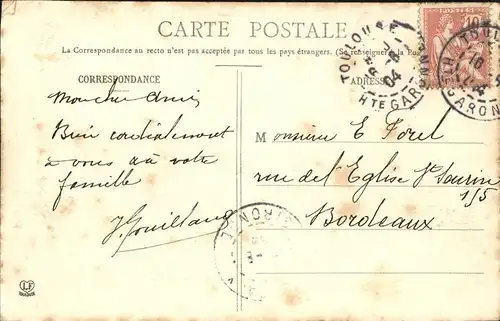 CARTE POSTALE
La Correspondance au recto n'est pas acceptée par tous les pays étrangers. (Se renseigner à la Pos
CORRESPONDANCE
ADRESSE
Mon cher Ami
Bien cordialement
à vous et à votre
famille
M onsieur E Forel
rue de l'Eglise St Saurin
115
Bordeaux
TOULOUSE
04
HTE GARONNE
10
TOUL
GARON
GIRON
LF